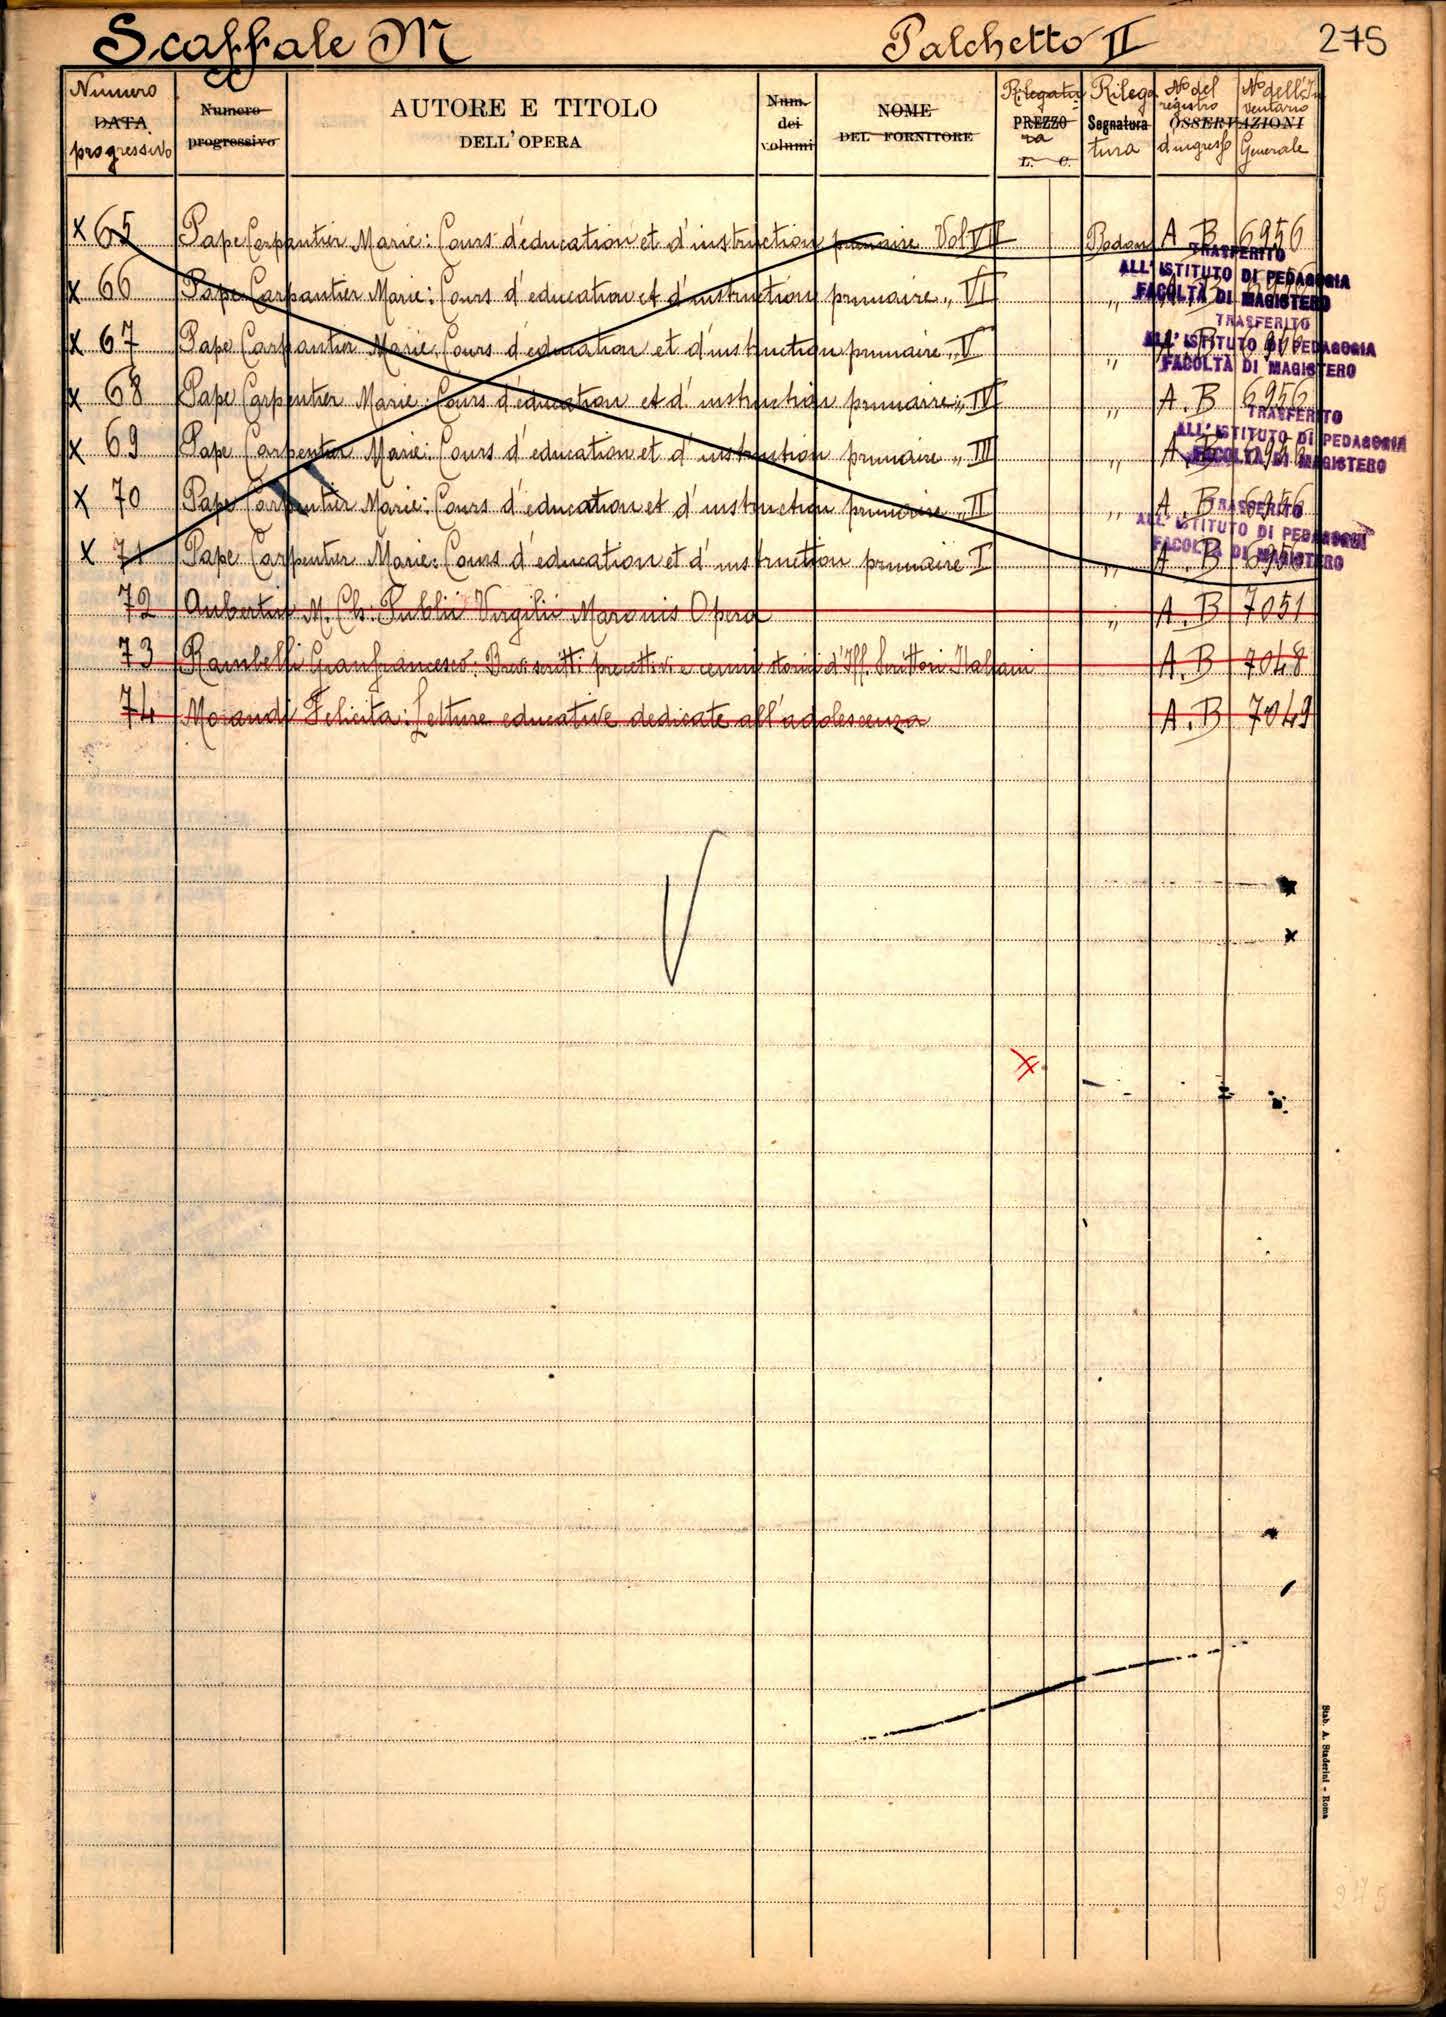 Scaffale M Palchetto II 275
Numero DATA progressivo
Numero progressivo
AUTORE E TITOLO
DELL'OPERA
Num. dei volumi
NOME
DEL FORNITORE
Rilegatu PREZZO ra
L. C.
Rilega Segnatura tura
No del registro d'ingresso
OSSERVAZIONI
No dell'In ventario Generale
x 65 Pape Carpantier Marie: Cours d'éducation et d'instruction primaire Vol VII Bodoni A B 6956
TRASFERITO
ALL'ISTITUTO DI PEDAGOGIA
FACOLTÀ DI MAGISTERO
x 66 Pape Carpantier Marie: Cours d'éducation et d'instruction primaire „ VI „ A. B
TRASFERITO
ALL'ISTITUTO DI PEDAGOGIA
FACOLTÀ DI MAGISTERO
x 67 Pape Carpantier Marie: Cours d'éducation et d'instruction primaire „ V „
x 68 Pape Carpentier Marie: Cours d'éducation et d'instruction primaire „ IV „ A. B 6956
TRASFERITO
ALL'ISTITUTO DI PEDAGOGIA
FACOLTÀ DI MAGISTERO
x 69 Pape Carpentier Marie: Cours d'éducation et d'instruction primaire „ III „ A. B 6956
x 70 Pape Carpentier Marie: Cours d'éducation et d'instruction primaire „ II „ A. B 6956
TRASFERITO
ALL'ISTITUTO DI PEDAGOGIA
FACOLTÀ DI MAGISTERO
x 71 Pape Carpentier Marie: Cours d'éducation et d'instruction primaire I „ A. B 6956
72 Aubertin M. Ch: Publii Virgilii Maronis Opera „ A. B 7051
73 Rambelli Gianfrancesco: Brevi scritti precettivi e cenni storici d'Ill. Scrittori Italiani A. B 7048
74 Morandi Felicita: Letture educative dedicate all'adolescenza A. B 7049
Stab. A. Staderini - Roma
275